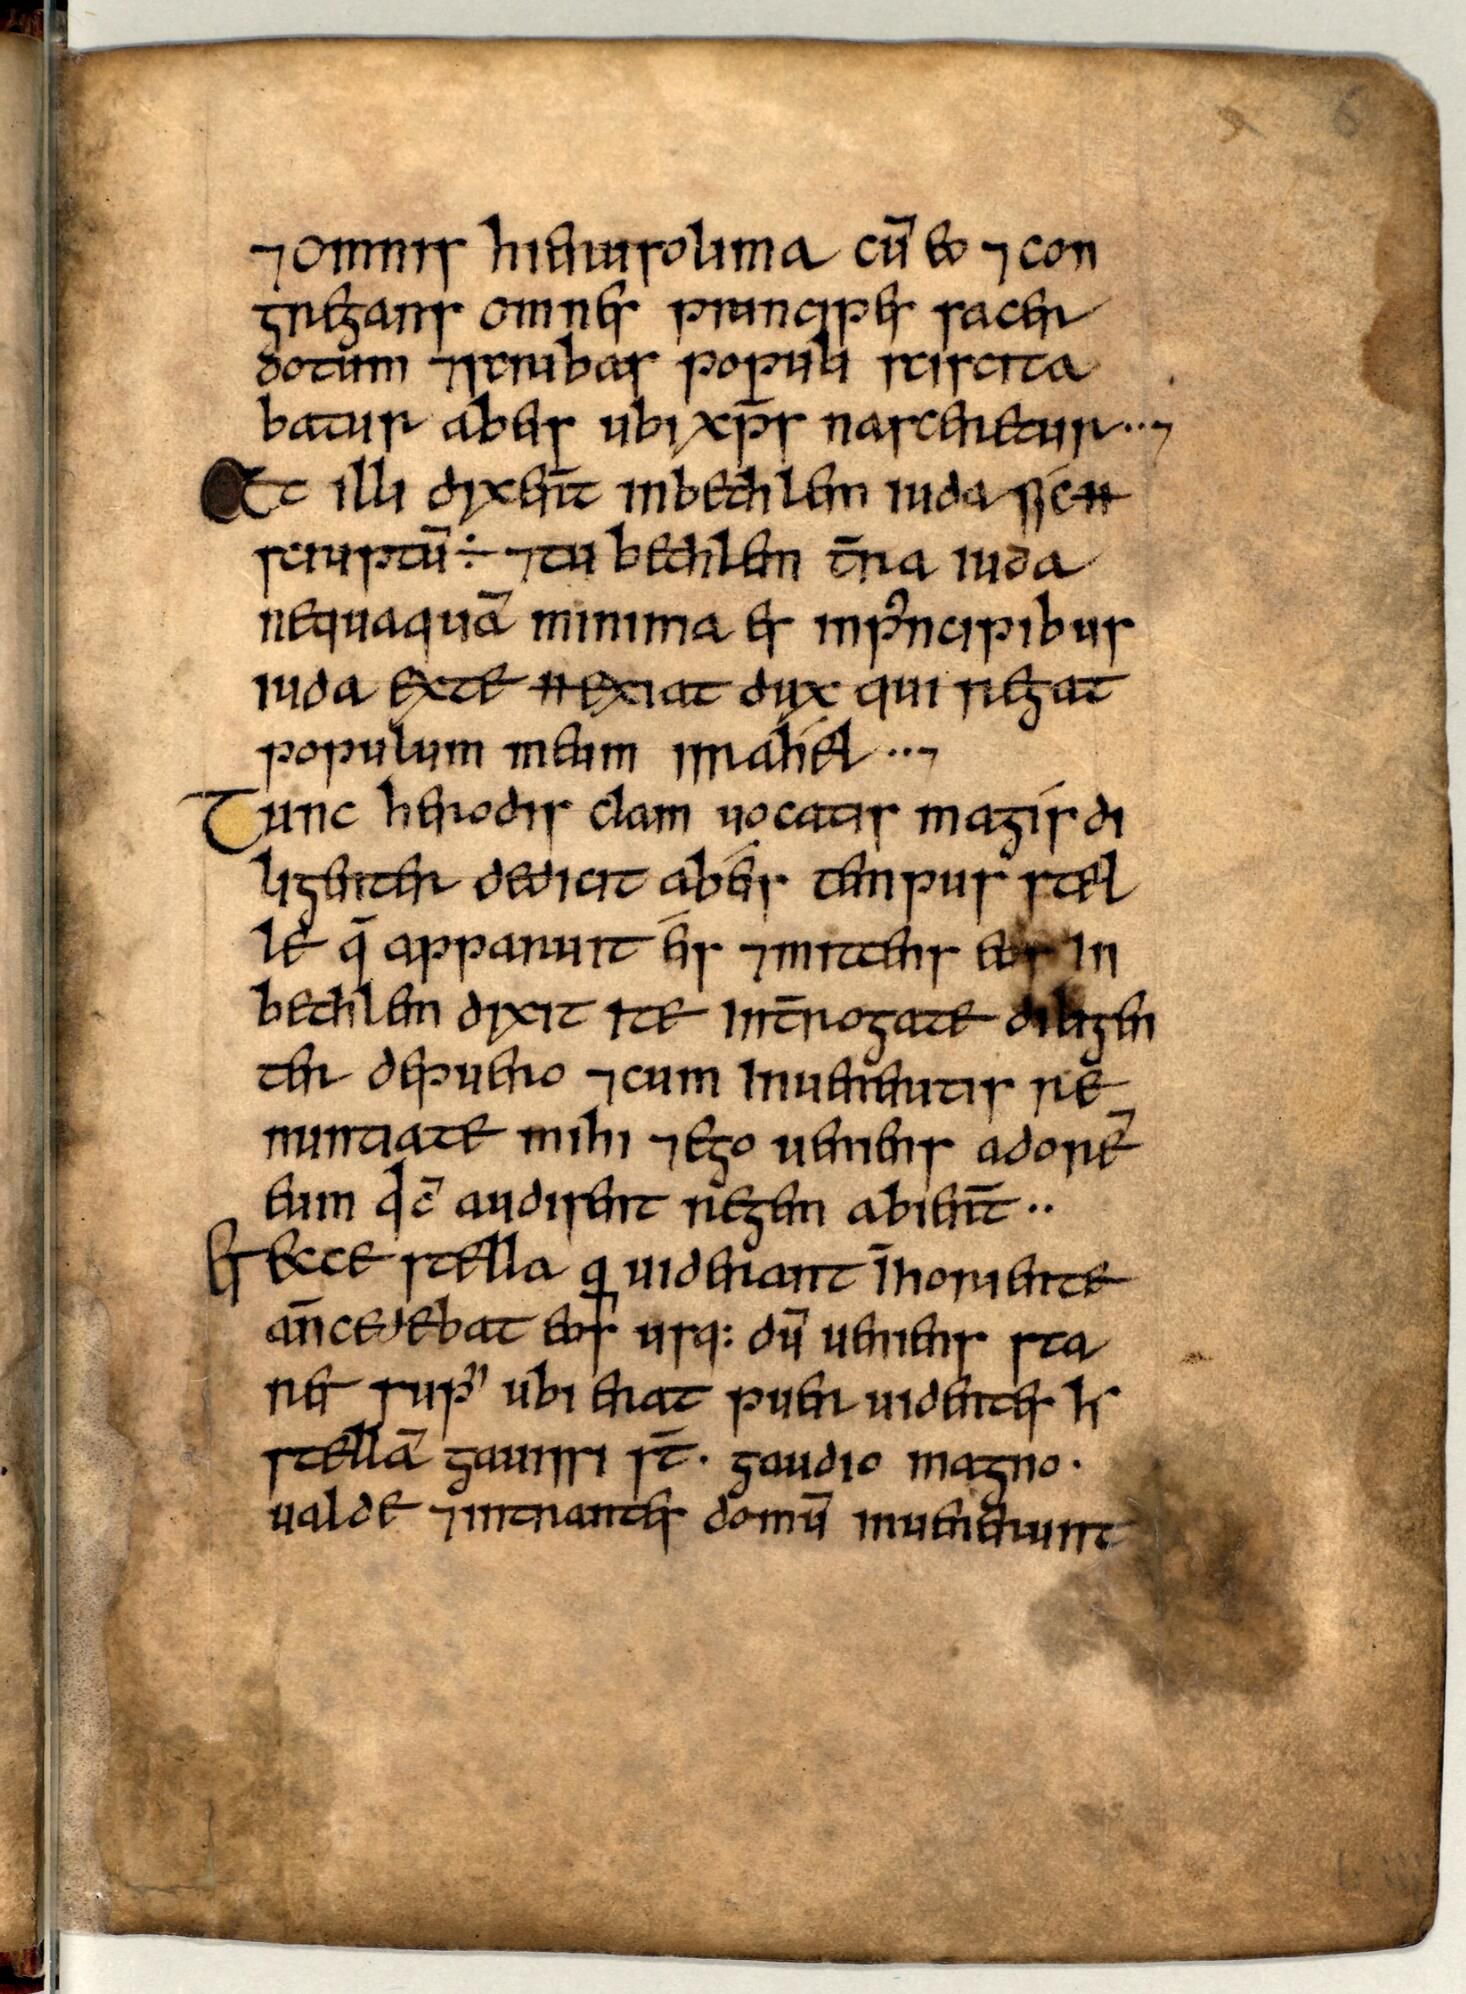 ⁊ omnis hieruisolima cū eo ⁊ con
gregans omnes principes sacer
dotum ⁊ scribas populi sciscita
batur ab eis ubi xp̄s nasceretur ··⁊
Et illi dixer̄t in bethlem iuda sic ħ
scriptū ÷ ⁊ tu bethlem t̄ra iuda
nequaquā minima es in pͥncipibus
iuda ex te ħ exiat dux qui regat
populum meum israhel ··⁊
Tunc herodis clam uocatis magis di
ligenter dedicit ab eis tempus stel
le q̄ apparuit eis ⁊ mittens eos in
bethlem dixit ite int̄rogate diligen
ter de puero ⁊ cum inueneritis re
nuntiate mihi ⁊ ego ueniens adorē
eum qc̄ audisent regem abier̄t ··
Et ecce stella q uiderant in̄ horiente
an̄cedebat eos usq: dū ueniens sta
ret sup̄ ubi erat puer uidentes h̄
stellā gauissi st̄· gaudio magno·
ualde ⁊ intrantes domū inuenerunt